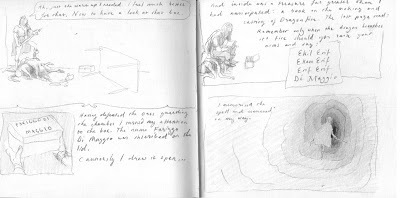 Ah, just the warm up I needed. I feel much better
for that. Now to have a look at that box.
Having defeated the ones guarding
the chamber I turned my attention
to the box. The name
Di Maggio was inscribed on the
lid.
Cautiously I draw it open...
MAGGIO
And inside was a treasure far greater than I
had anticipated: a book on the making and
casting of Dragonfire. The last page read:
Remember only when the dragon breathes
its fire should you raise your
arms and say:
Ekil Erif
Ekam Erif
Erif Erif
Di Maggio
I memorised the
spell and continued
on my way.